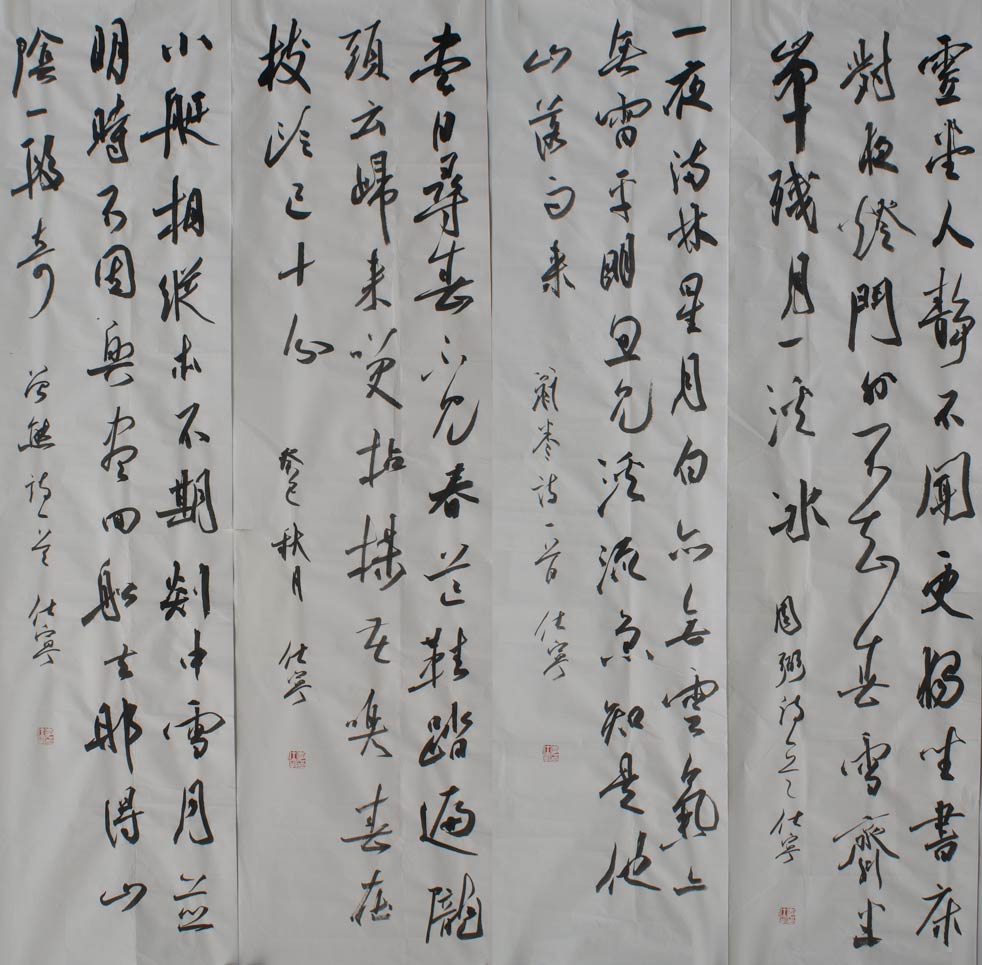 虛堂人靜不聞更獨坐書床
對夜燈門外不知春雪霽半
峯殘月一溪冰 周弼詩 仕寧
一夜滿林星月白亦無雲氣亦
無雷平明忽見溪流急知是他
山落雨來 翁卷詩一首 仕寧
盡日尋春不見春芒鞋踏遍隴
頭云歸來笑拈梅花嗅春在
枝頭已十分 癸巳秋月 仕寧
小艇相從本不期剡中雪月並
明時不因興盡回船去那得山
陰一段奇 曾幾詩一首 仕寧